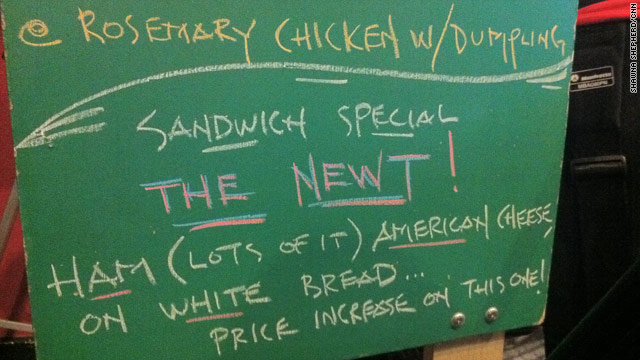 @ ROSEMARY CHICKEN W/DUMPLING
SANDWICH SPECIAL
THE NEWT!
HAM (LOTS OF IT) AMERICAN CHEESE
ON WHITE BREAD...
PRICE INCREASE ON THIS ONE!
SHAWNA SHEPHERD/CNN